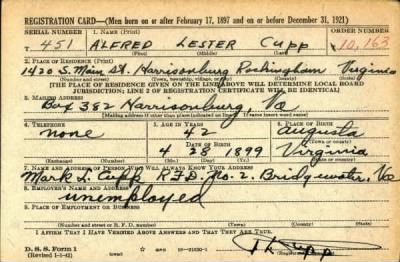 REGISTRATION CARD—(Men born on or after February 17, 1897 and on or before December 31, 1921)
SERIAL NUMBER 1. NAME (Print) ORDER NUMBER
T 451 ALFRED LESTER Cupp 10,165
(First) (Middle) (Last)
2. PLACE OF RESIDENCE (Print)
1420 S. Main St. Harrisonburg Rockingham Virginia
(Number and street) (Town, township, village, or city) (County) (State)
[THE PLACE OF RESIDENCE GIVEN ON THE LINE ABOVE WILL DETERMINE LOCAL BOARD
JURISDICTION; LINE 2 OF REGISTRATION CERTIFICATE WILL BE IDENTICAL]
3. MAILING ADDRESS
Box 382 Harrisonburg, Va
[Mailing address if other than place indicated on line 2. If same insert word same]
4. TELEPHONE 5. AGE IN YEARS 6. PLACE OF BIRTH
none 42 Augusta
DATE OF BIRTH (Town or county)
4 28 1899 Virginia
(Exchange) (Number) (Mo.) (Day) (Yr.) (State or country)
7. NAME AND ADDRESS OF PERSON WHO WILL ALWAYS KNOW YOUR ADDRESS
Mark L. Cupp R.F.D. No. 2. Bridgewater, Va
8. EMPLOYER'S NAME AND ADDRESS
unemployed
9. PLACE OF EMPLOYMENT OR BUSINESS
(Number and street or R. F. D. number) (Town) (County) (State)
I AFFIRM THAT I HAVE VERIFIED ABOVE ANSWERS AND THAT THEY ARE TRUE.
D. S. S. Form 1
(Revised 1-1-42) Cupp